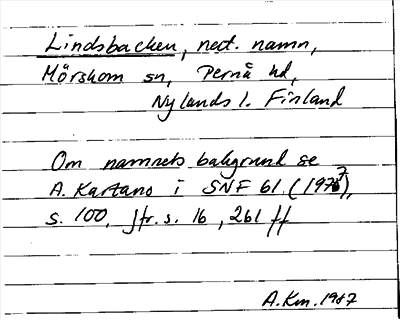 Lindsbacken, ned. namn,
Mörskom sn, Pernå hd,
Nylands l. Finland
Om namnets bakgrund se
A. Kartano i SNF 61 (1977),
s. 100, jfr. s. 16, 261 ff
A.Km. 1987